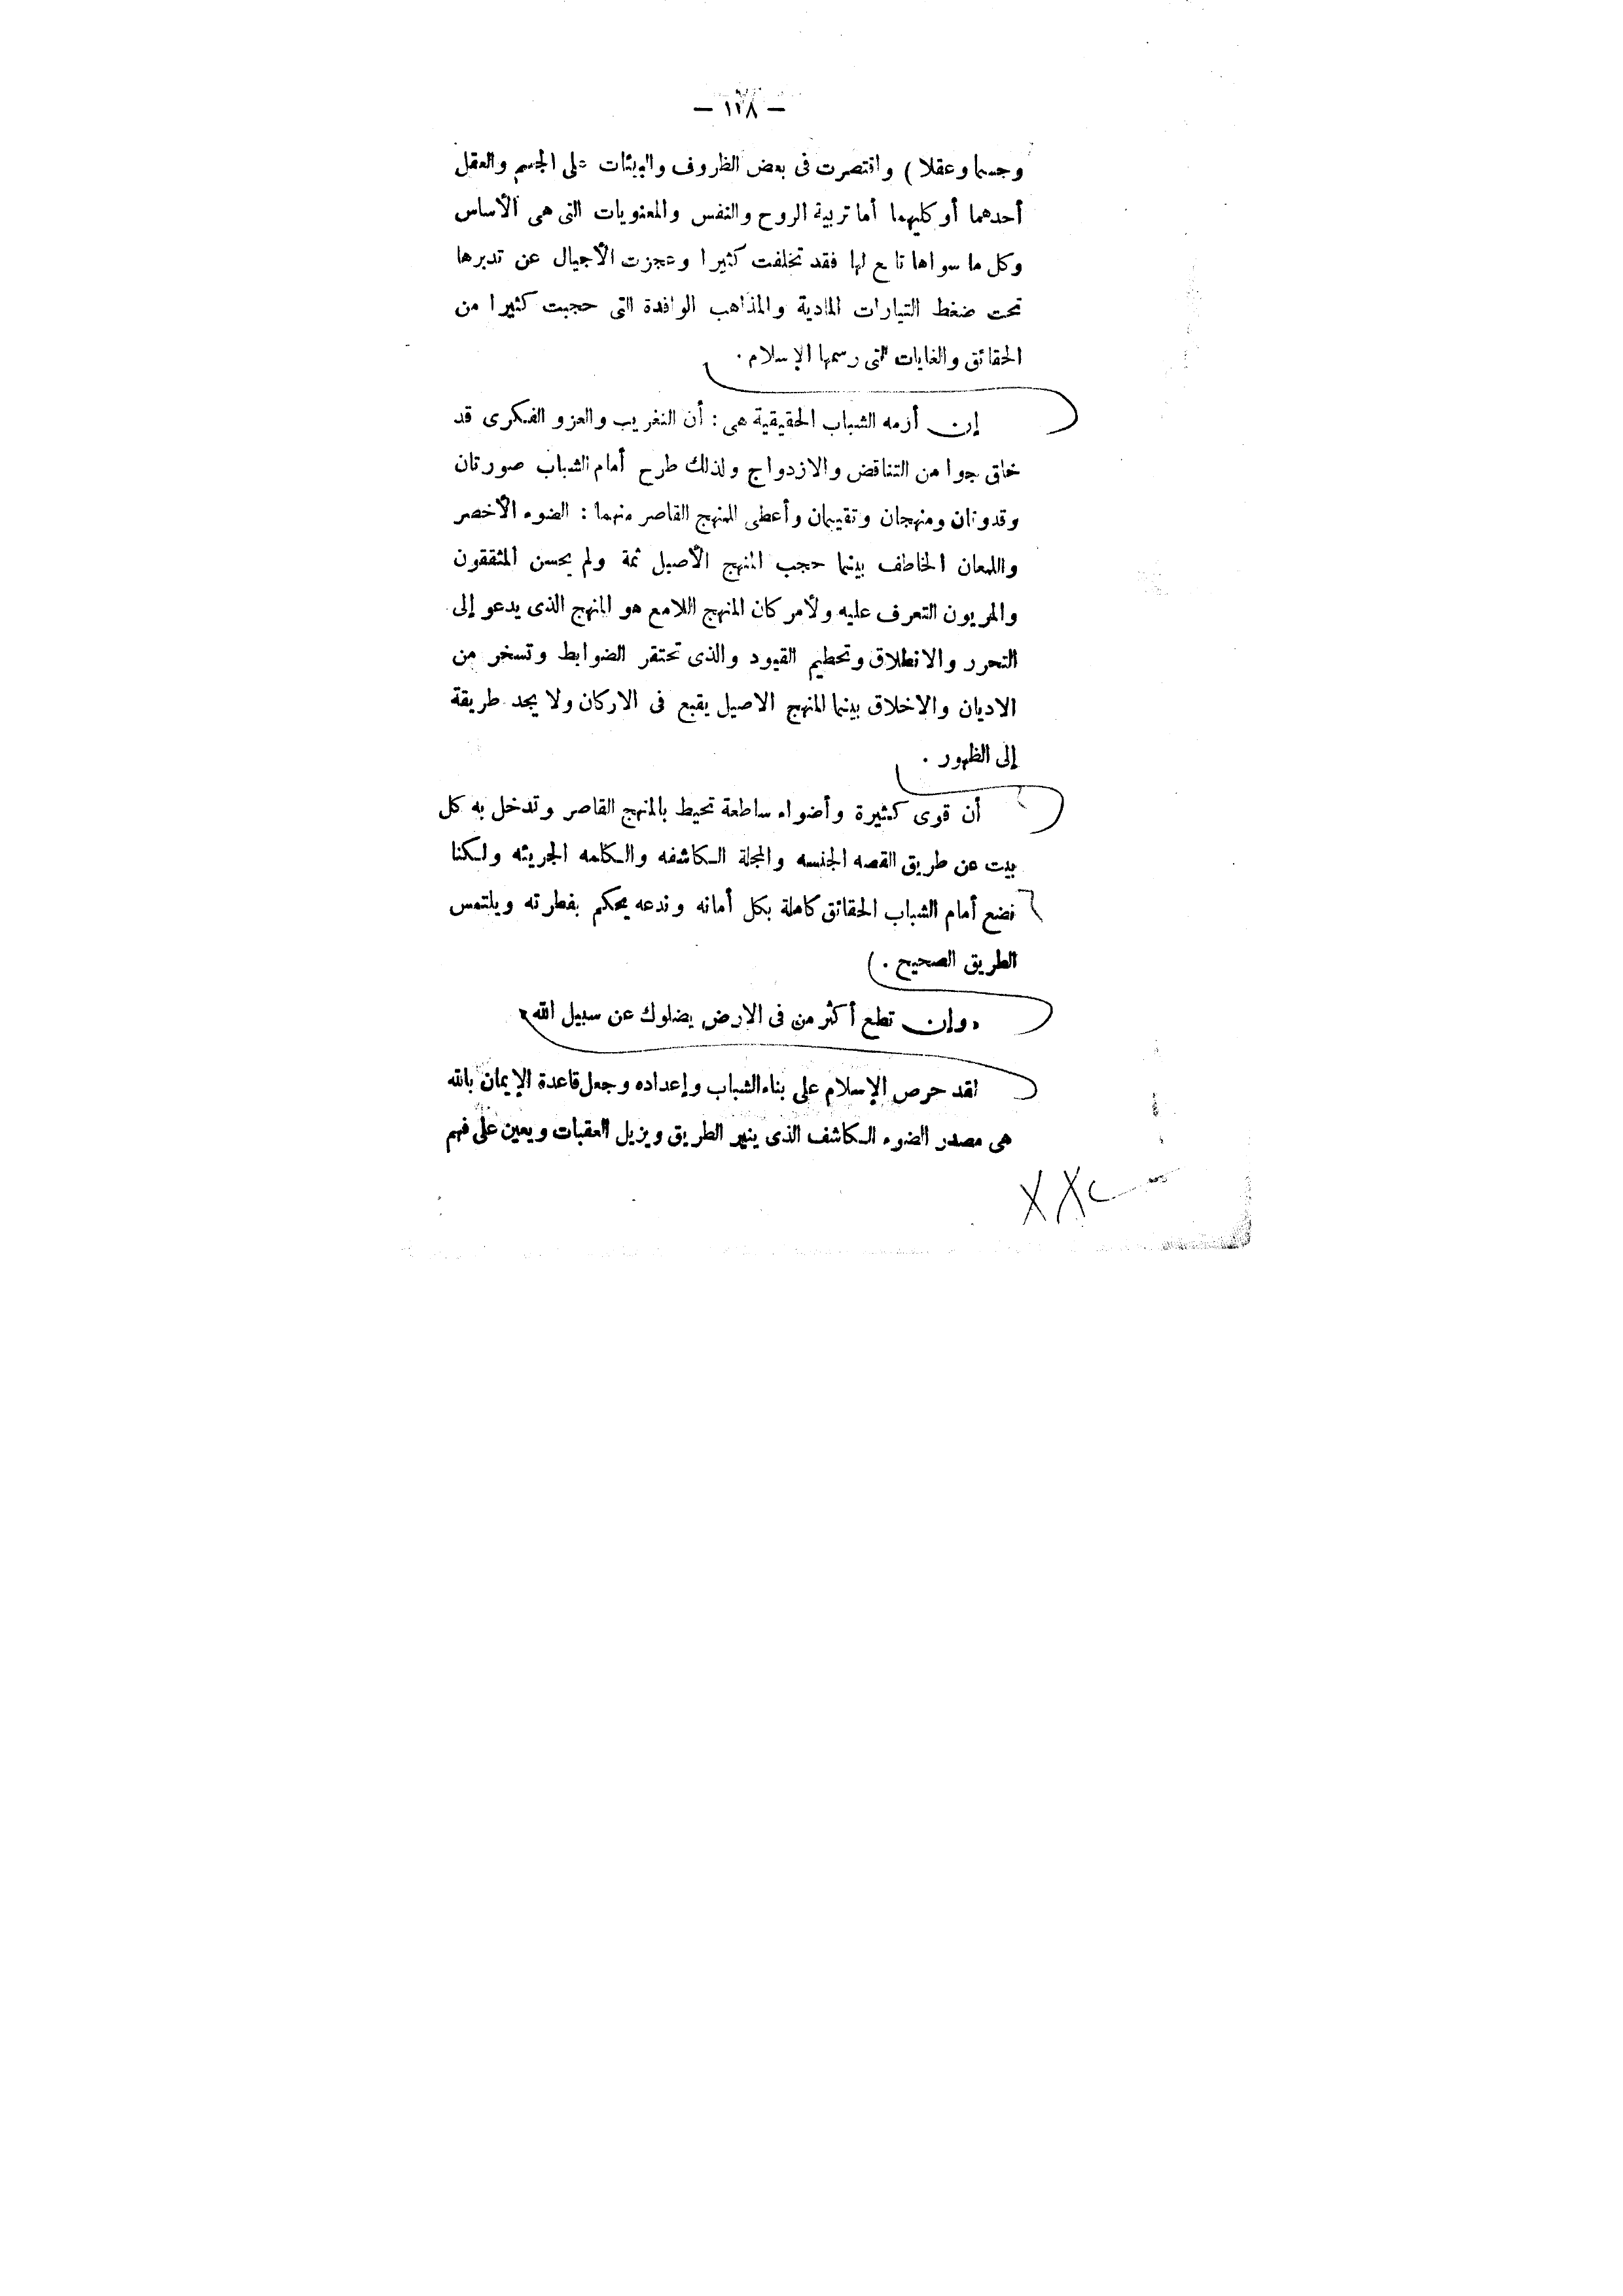 — ١٢٨ —
وجسما وعقلا ) واقتصرت فى بعض الظروف والبيئات على الجسم والعقل
أحدهما أو كليهما أما تربية الروح والنفس والمعنويات التى هى الأساس
وكل ما سواها تابع لها فقد تخلفت كثيرا وعجزت الأجيال عن تدبرها
تحت ضغط التيارات المادية والمذاهب الوافدة التى حجبت كثيرا من
الحقائق والغايات التى رسمها الإسلام .
إن أزمه الشباب الحقيقية هى : أن التغريب والغزو الفكرى قد
خلق جوا من التناقض والازدواج ولذلك طرح أمام الشباب صورتان
وقدوتان ومنهجان وتقييمان وأعطى المنهج القاصر منهما : الضوء الأخضر
واللمعان الخاطف بينما حجب المنهج الأصيل ثمة ولم يحسن المثقفون
والمربون التعرف عليه ولأمر كان المنهج اللامع هو المنهج الذى يدعو إلى
التحرر والانطلاق وتحطيم القيود والذى تحتقر الضوابط وتسخر من
الاديان والاخلاق بينما المنهج الاصيل يقبع فى الاركان ولا يجد طريقة
إلى الظهور .
أن قوى كثيرة وأضواء ساطعة تحيط بالمنهج القاصر وتدخل به كل
بيت عن طريق القصه الجنسه والمجلة الكاشفه والكلمه الجريئه ولكنا
نضع أمام الشباب الحقائق كاملة بكل أمانه وندعه يحكم بفطرته ويلتمس
الطريق الصحيح . )
« وإن تطع أكثر من فى الارض يضلوك عن سبيل الله »
لقد حرص الإسلام على بناء الشباب وإعداده وجعل قاعدة الإيمان بالله
هى مصدر الضوء الكاشف الذى ينير الطريق ويزيل العقبات ويعين على فهم